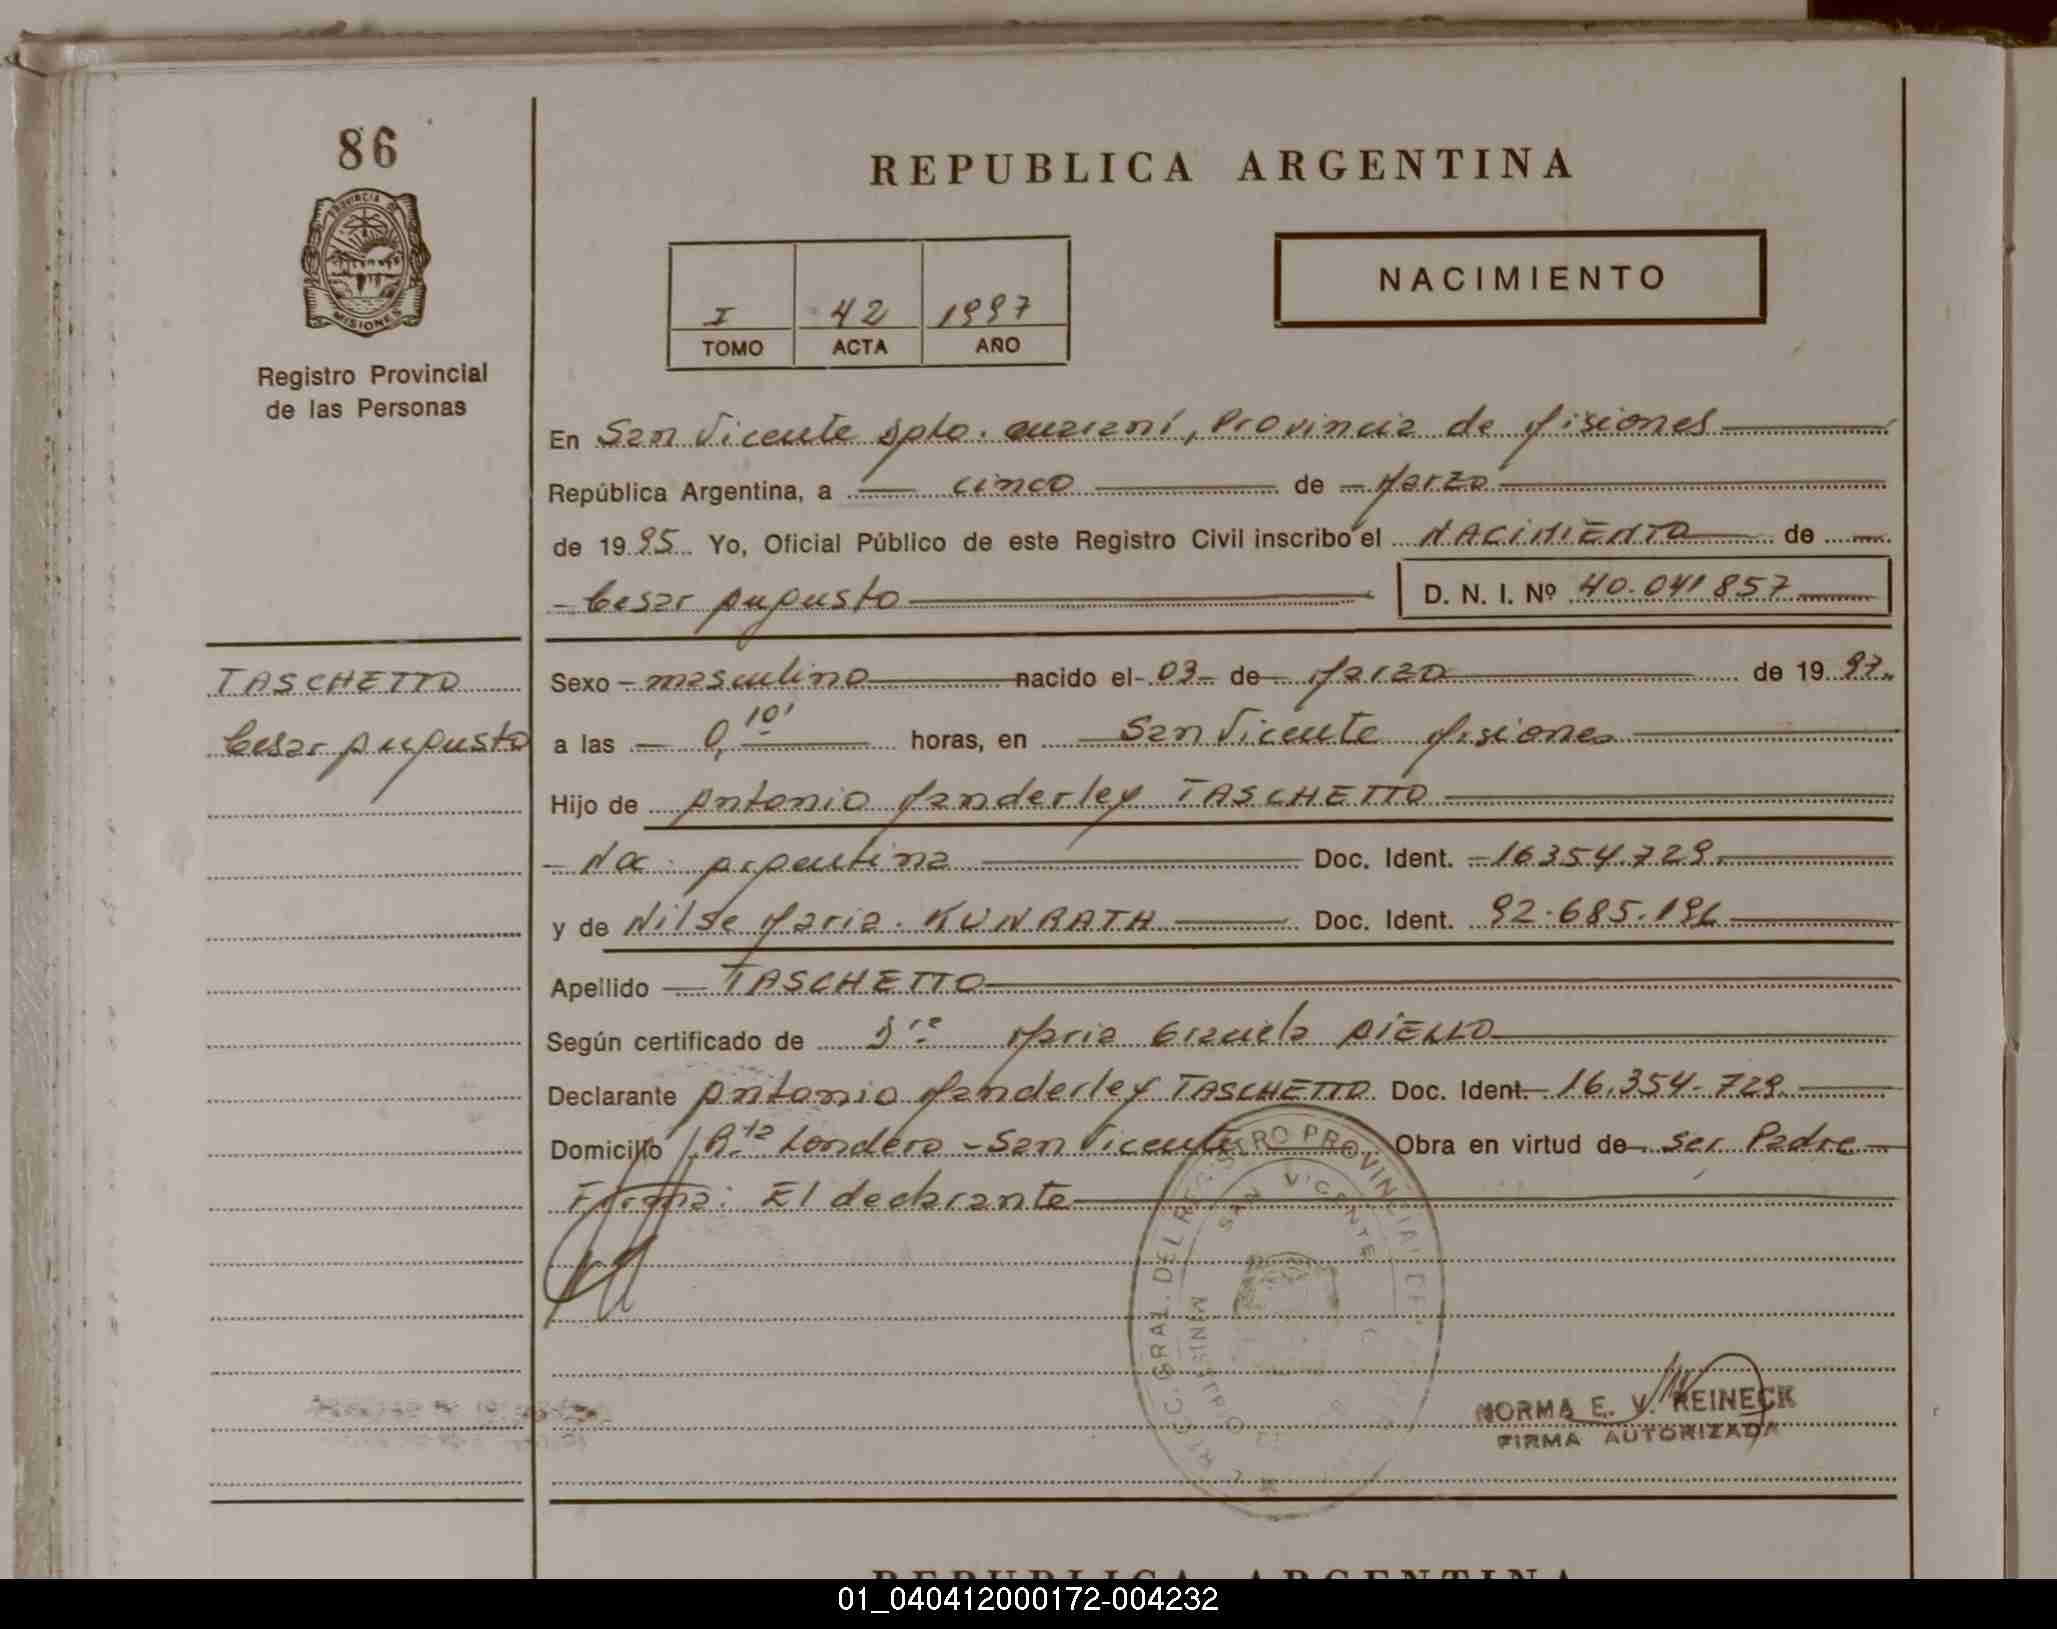 86
PROVINCIA DE
MISIONES
Registro Provincial
de las Personas
REPUBLICA ARGENTINA
I 42 1997
TOMO ACTA AÑO
NACIMIENTO
En San Vicente Dpto. Guaraní, Provincia de Misiones
República Argentina, a cinco de Marzo
de 1995 Yo, Oficial Público de este Registro Civil inscribo el NACIMIENTO de
Cesar Augusto D. N. I. Nº 40.041857
TASCHETTO
Cesar Augusto
Sexo masculino nacido el 03 de Marzo de 1997.
a las 0,10' horas, en San Vicente Misiones
Hijo de Antonio Vanderley TASCHETTO
Nac. Argentina Doc. Ident. 16354.729.
y de Nilse Maria KUNRATH Doc. Ident. 92.685.196
Apellido TASCHETTO
Según certificado de Dra Maria Graciela AIELLO
Declarante Antonio Vanderley TASCHETTO Doc. Ident. 16.354.729
Domicilio Rta Londero - San Vicente Obra en virtud de ser Padre
Firma: El declarante
DEL REGISTRO PROVINCIAL DE
SAN VICENTE
NORMA E. V. REINECK
FIRMA AUTORIZADA
REPUBLICA ARGENTINA
01_040412000172-004232